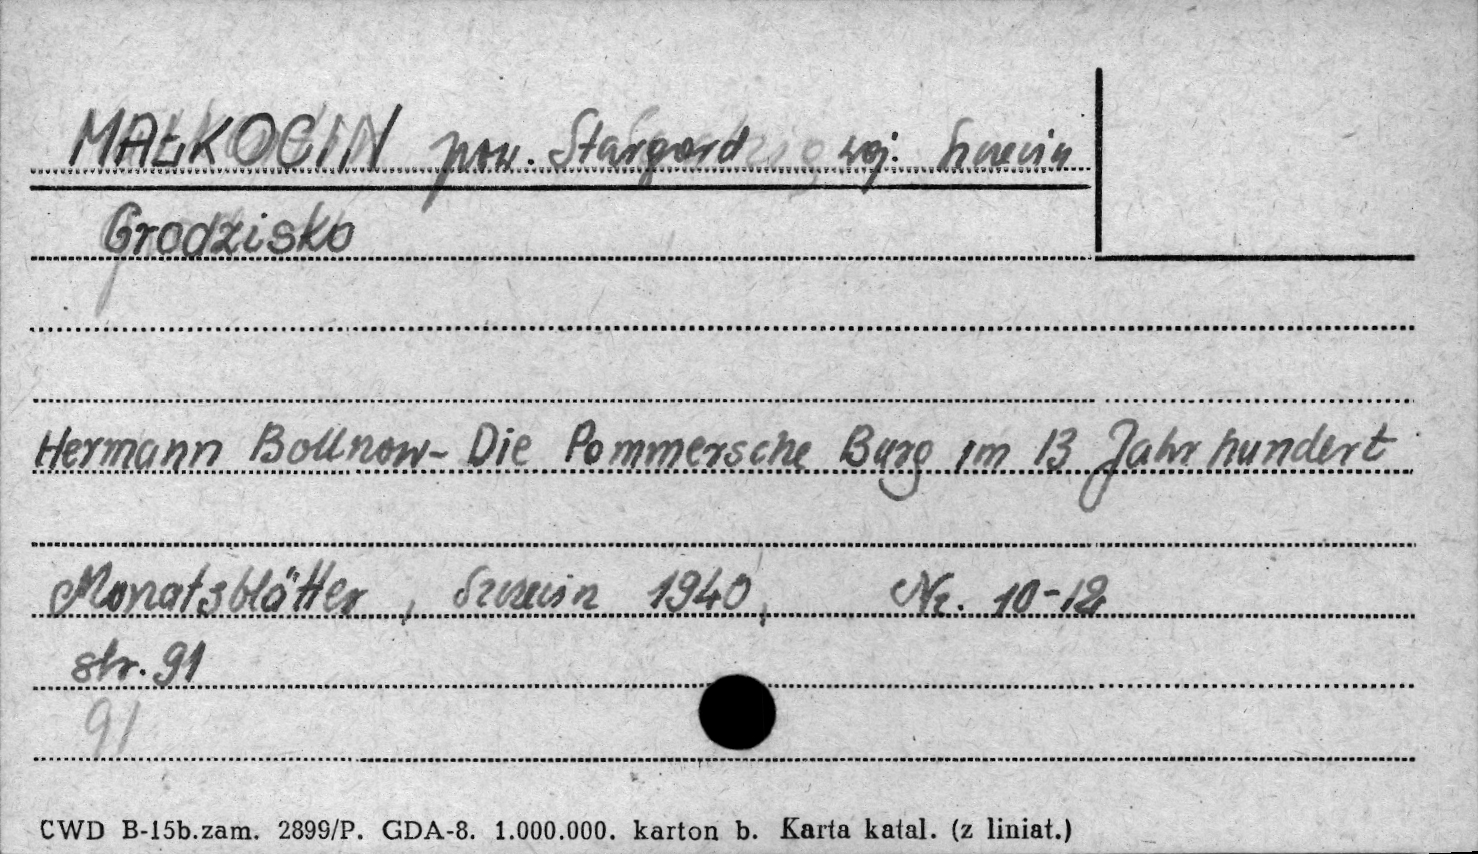 MAŁKOCIN pow. Stargard woj. Szczecin
Grodzisko
Hermann Bollnow- Die Pommersche Burg im 13 Jahrhundert
Monatsblätter, Szczecin 1940, Nr. 10-12
str. 91
91
CWD B-15b.zam. 2899/P. GDA-8. 1.000.000. karton b. Karta katal. (z liniat.)